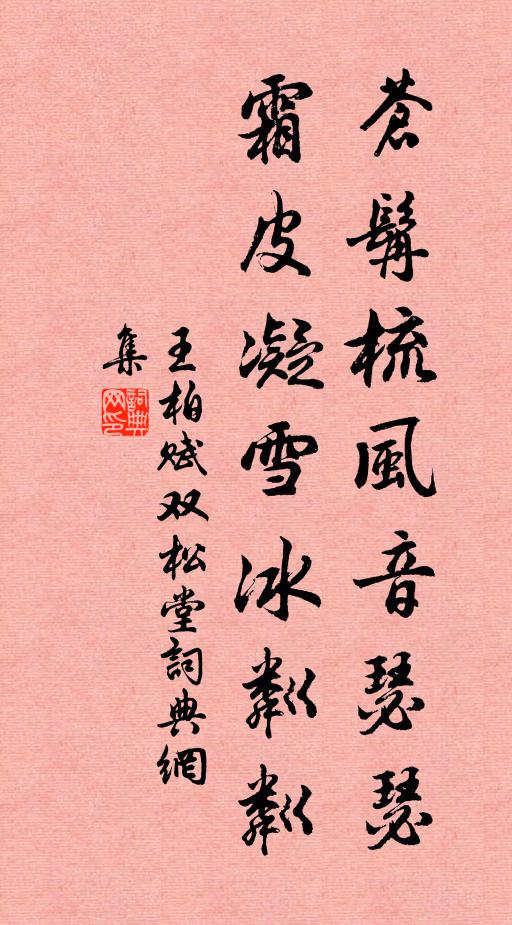 蒼髯梳風音瑟瑟
霜皮凝雪冰粼粼
王柏賦双松堂詞典網
集
詞典網印